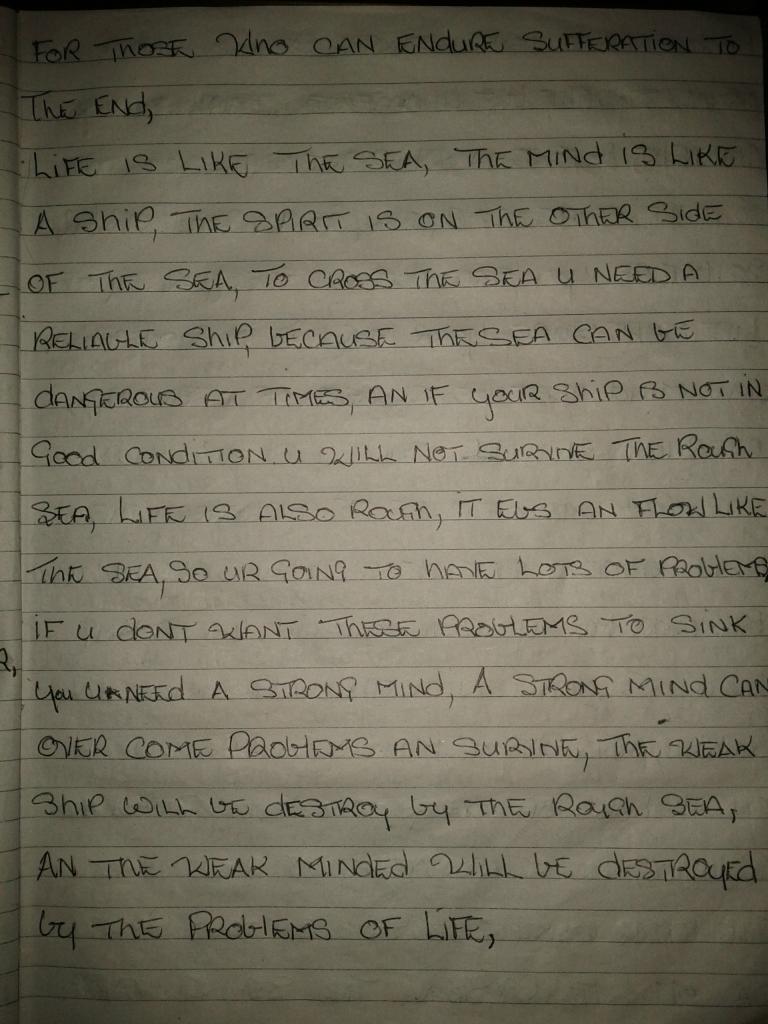 FOR THOSE WHO CAN ENDURE SUFFERATION TO
THE END,
LIFE IS LIKE THE SEA, THE MIND IS LIKE
A SHIP, THE SPIRIT IS ON THE OTHER SIDE
OF THE SEA, TO CROSS THE SEA U NEED A
RELIABLE SHIP, BECAUSE THE SEA CAN BE
DANGEROUS AT TIMES, AN IF YOUR SHIP IS NOT IN
GOOD CONDITION U WILL NOT SURVIVE THE ROUGH
SEA, LIFE IS ALSO ROUGH, IT EBS AN FLOW LIKE
THE SEA, SO UR GOING TO HAVE LOTS OF PROBLEMS,
IF U DONT WANT THESE PROBLEMS TO SINK
YOU U NEED A STRONG MIND, A STRONG MIND CAN
OVER COME PROBLEMS AN SURVIVE, THE WEAK
SHIP WILL BE DESTROY BY THE ROUGH SEA,
AN THE WEAK MINDED WILL BE DESTROYED
BY THE PROBLEMS OF LIFE,